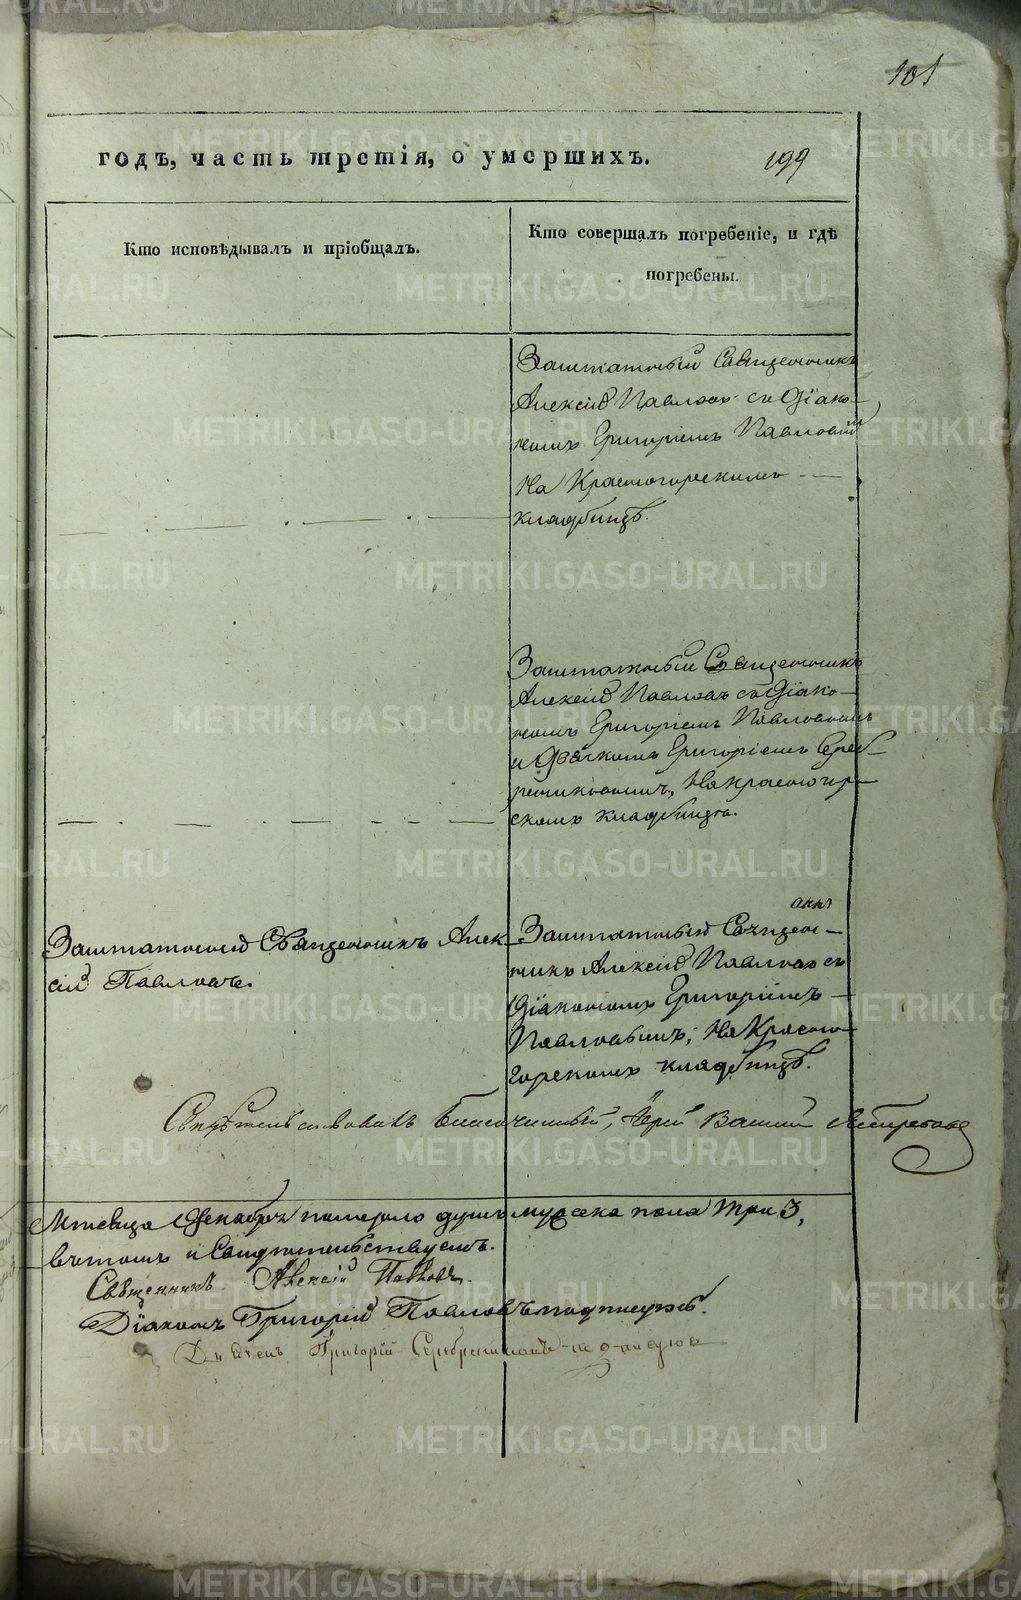 101
годъ, часть третія, о умершихъ.
199
Кто исповѣдывалъ и пріобщалъ.
Кто совершалъ погребеніе, и гдѣ
погребены.
Заштатный Священникъ
Алексій Павловъ съ Діако-
номъ Григоріемъ Павловым
На Красногорскомъ
кладбищѣ.
Заштатный Священникъ
Алексій Павловъ съ Діако-
номъ Григоріемъ Павловымъ
и Дьячкомъ Григоріемъ Среб-
ренниковымъ, На красногор-
скомъ кладбищѣ.
Заштатный Священникъ Алек-
сій Павловъ.
Заштатный Священ-
никъ Алексій Павловъ съ
Діакономъ Григоріемъ
Павловымъ, На Красно-
горскомъ кладбищѣ.
Свидѣтельствовалъ Благочинный, Іерей Василий
Мѣсяца Декабря померло душъ мужска пола три 3,
въ томъ и Свидѣтельствуемъ.
Священникъ Алексій Павловъ.
Діаконъ Григорій Павловъ подписуюсь.
Дьячекъ Григорій Серебрениковъ подписуюс
METRIKI.GASO-URAL.RU